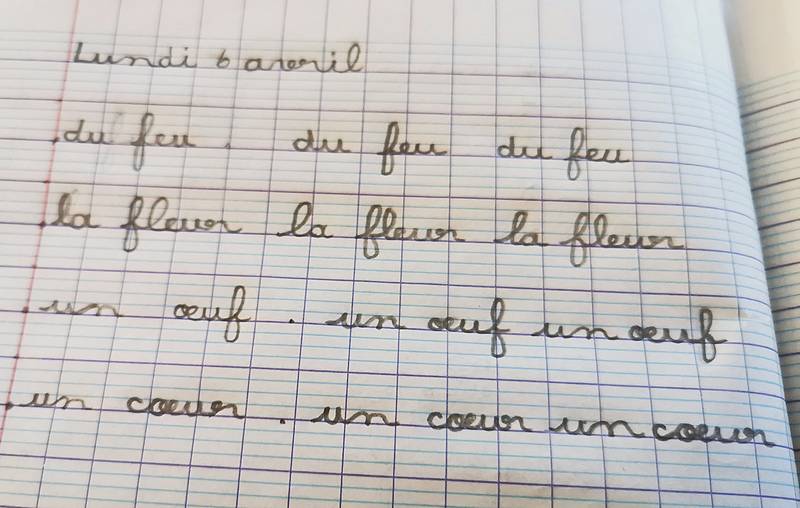 Lundi 6 avril
du feu. du feu du feu
la fleur la fleur la fleur
un oeuf. un oeuf un oeuf
un coeur. un coeur un coeur